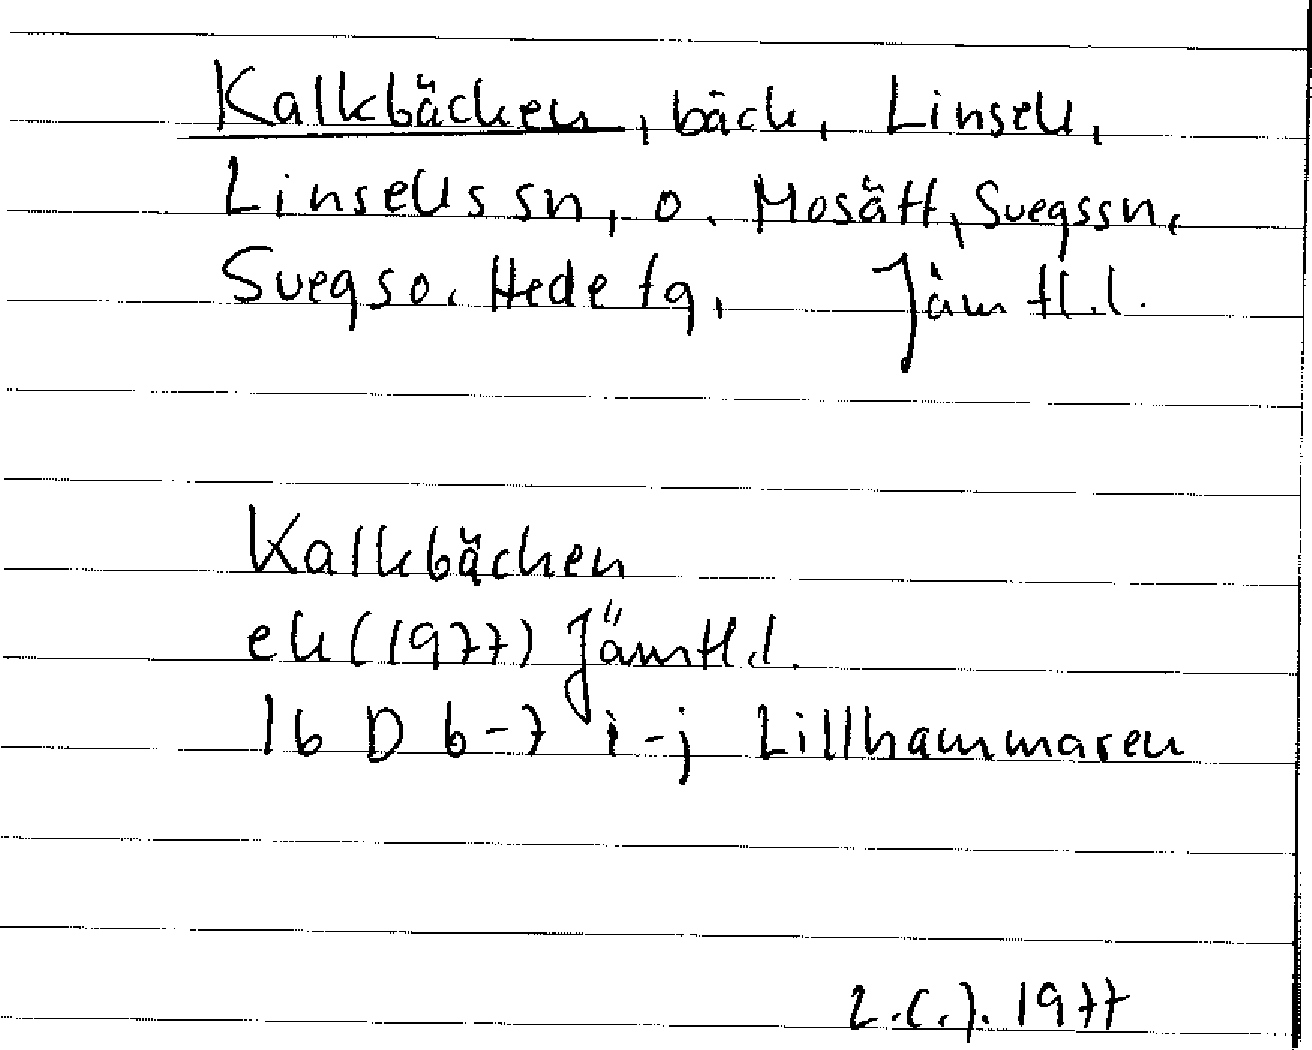 Kalkbäcken, bäck, Linsell,
Linsells sn, o. Mosätt, Svegs sn,
Svegs o. Hede tg, Jämtl.l.
Kalkbäcken
ek (1977) Jämtl.l.
16 D 6-7 i-j Lillhammaren
L.C.J. 1977